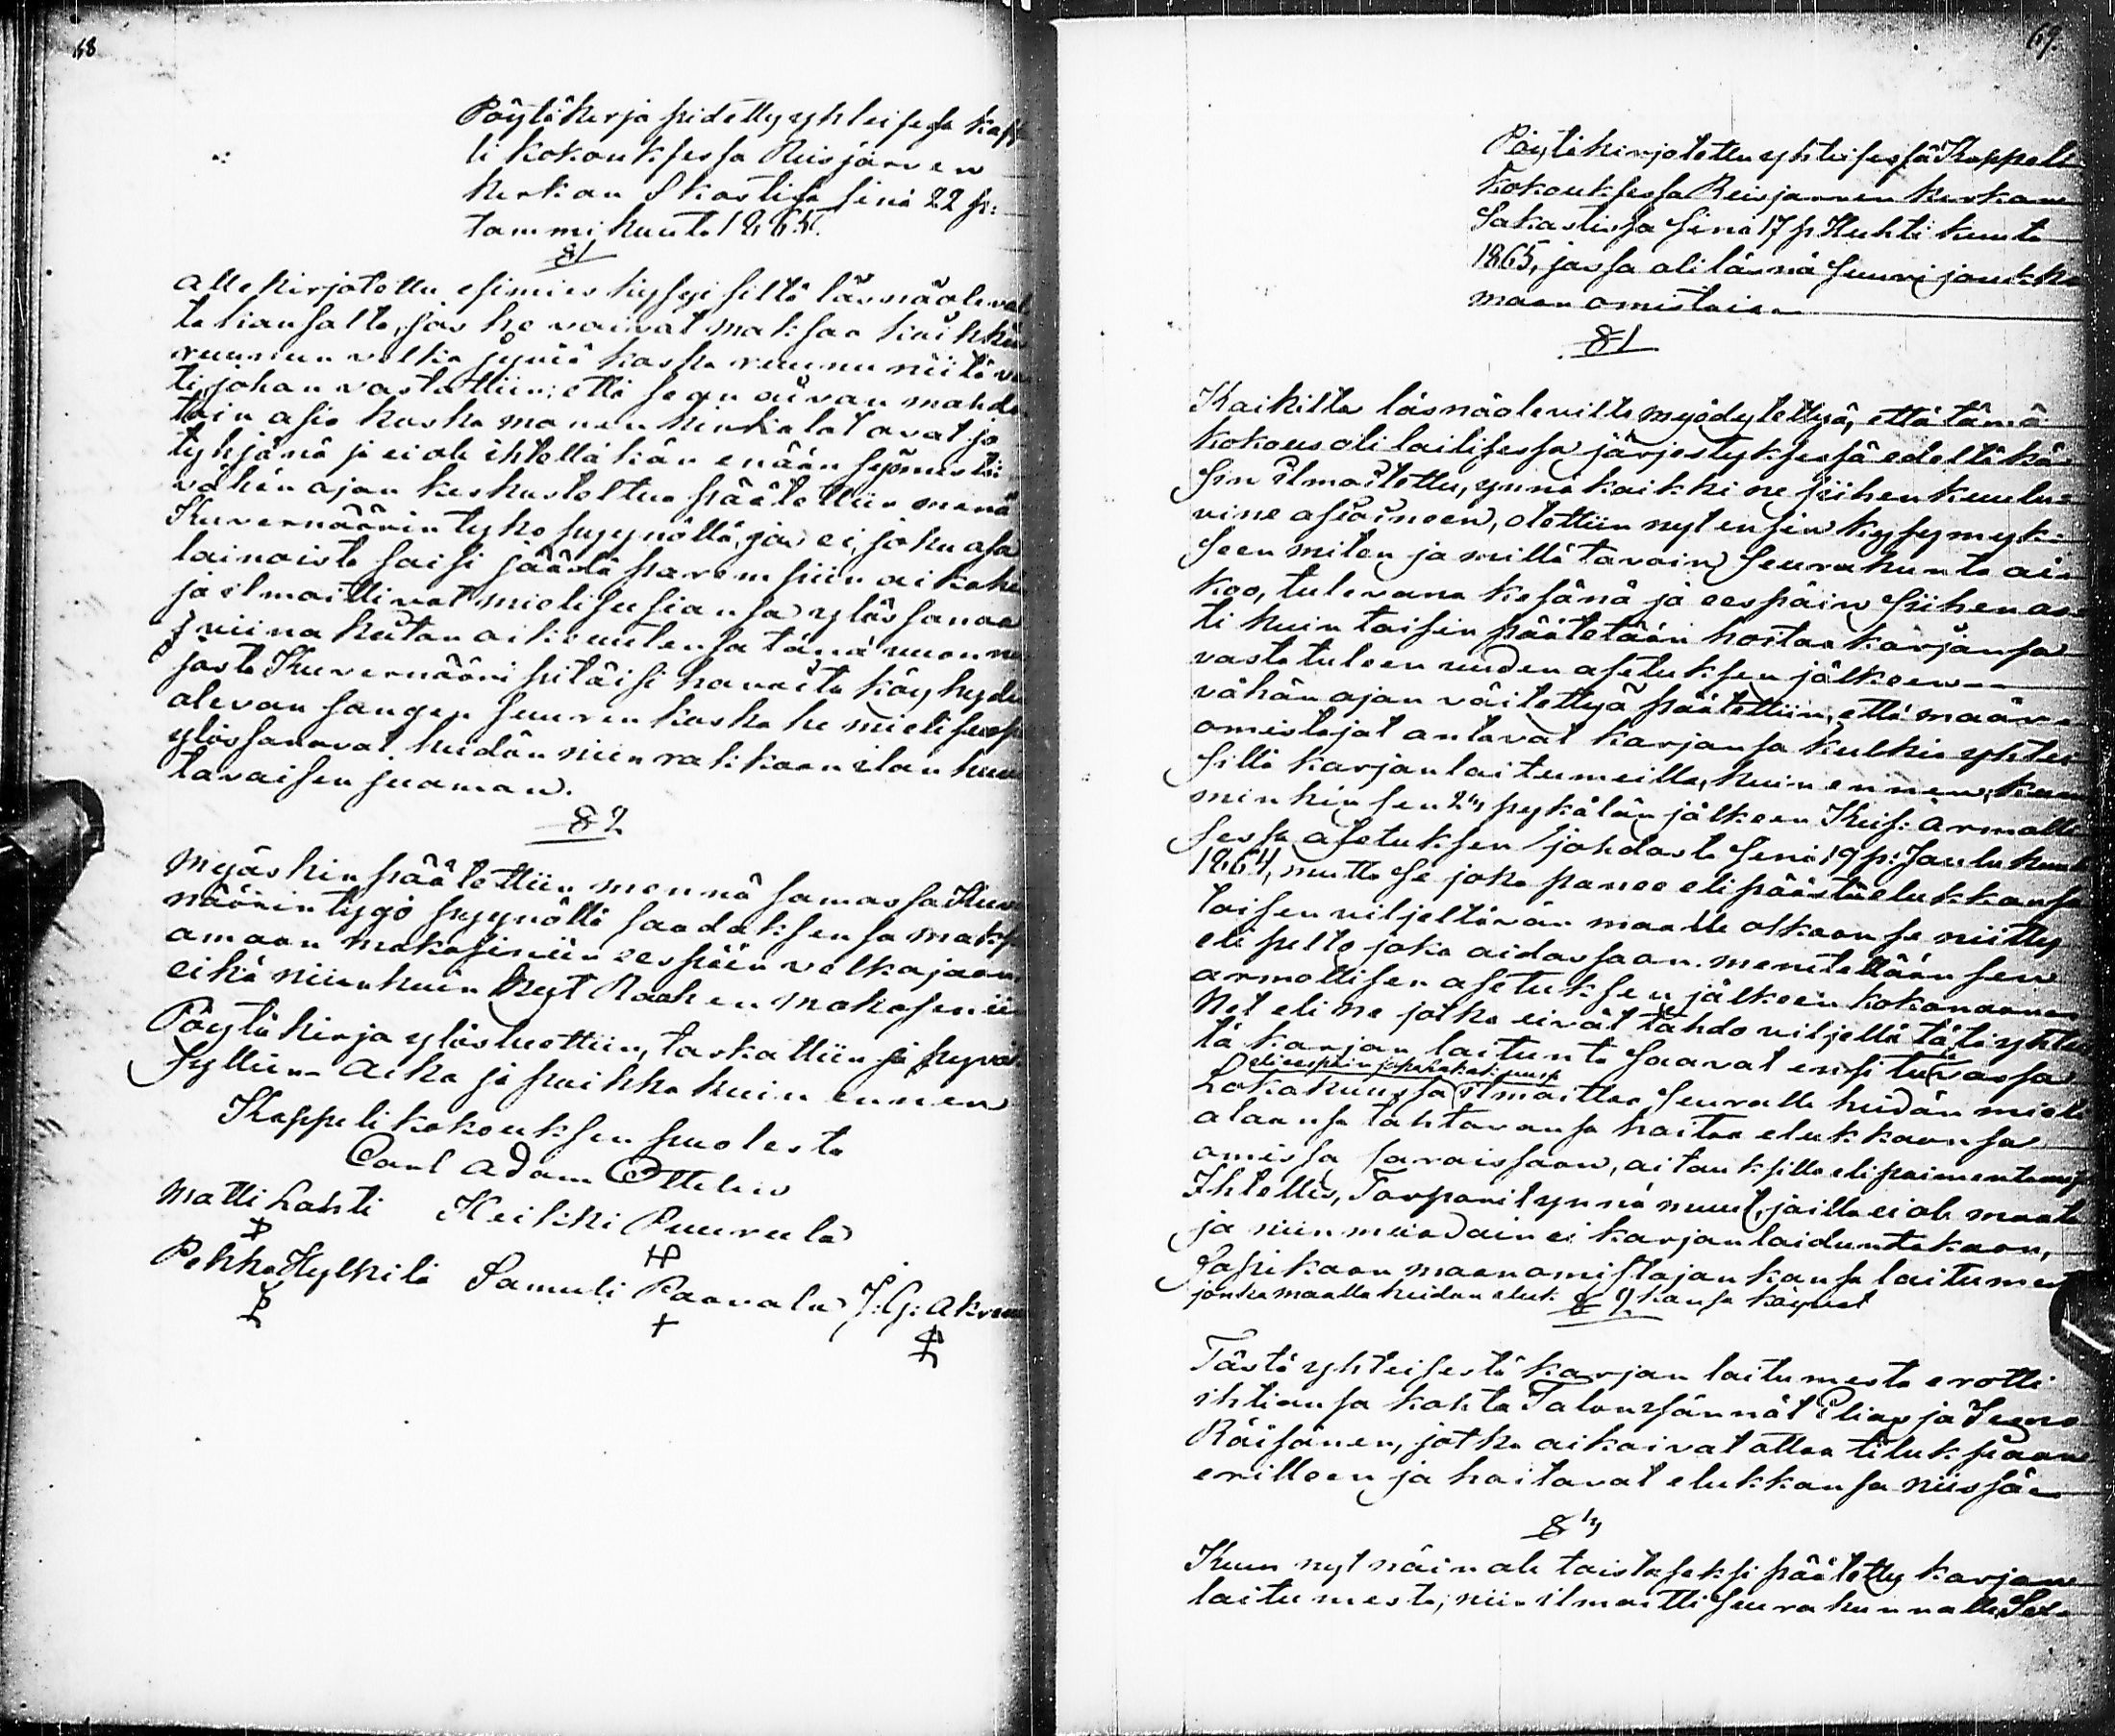 68
Pöytäkerja pidetty yhleisesa kapp
li kokouksessa Reisjärven
kerkon Skastisa sinä 22 p:
tammikuuta 1865.
§1
Alle kirjotettu esimies kysyi siltä läsnäoleval
ta kansalta, jos he voivat maksaa kaikken
ruunun velka jyviä koska ruunu niitä va
ti, johan vastattiin: että se on aivan mahdo
toin asia koska monen hinkalot ovat jo
tyhjänä ja ei ole ihtelläkän enään syömistä:
vähän ajan keskusteltua päätettiin mennä
Kuvernöörin tykö pyynöllä, jos ei, joku osa
lainoista saisi jäädä parempiin aikohin
ja ilmoittivat mielisuosiansa ylössanoa
viina keitan oikeuutensa tänä vuonna
josta Kuvernööri pitäisi havaita köyhyden
olevan sangen suuren koska he mielisuosi
ylössanovat heidän niin rakkaan ilan huu
tavaisen juoman.
§2
Myöskin päätettiin mennä samassa Kuver
nöörin tygö pyynöllä saadaksensa maks
amaan makasiniin eespäin velkajaan
eikä niinkuin nyt Raahen makaseniin
Pöytäkirja ylösluettiin, tarkattiin ja hyväk
syttiin Aika ja paikka kuin ennen
Kappeli kokouksen puolesta
Carl Adam Ottelin
Matti Lahti Heikki Puurula
Pekka Kylkilä Samuli Paavala J:G: Akrenius
69
Pöytäkirjotettu yhteisessä Kappeli
kokouksessa Reisjarven kerkon
Sakastissa sinä 17 p Huhti kuuta
1865, jossa oli läsnä suuri joukko
maan omistaisia
§1
Kaikilta läsnäolevilta myödytettyä, että tämä
kokous oli lailisessa järjestyksessä edeltä kä
sin ilmoitettu, ynnä kaikki ne siihen kuulu-
vine asioineen, otettiin nyt ensin kysymyk-
seen miten ja millä tavoin Seurakunta ai-
koo, tulevana kesänä ja eespäin siihen as-
ti kuin taisin päätetään hoitaa karjansa
vastatuleen uuden asetuksen jälkeen
vähän ajan väitettyä päätettiin, että maan
omistajat antavat karjansa kulkia yhtei
sillä karjanlaitumeilla, kuin ennen, kun
minkin sen 2n pykälän jälkeen Keis: Armolli
sessa asetuksen johdosta senä 19 p: Joulu kuuta
1864, mutta se joka panee eli päästä elukkansa
toisen viljeltävän maalle olkoon se niitty
eli pelto joka aidassaan menetellään sen
armollisen asetuksen jälkeen kokonaan
Net eli ne jotka eivät tahdo viljellä tätä yhteis
tä karjan laitunta saavat ensi tulevassa
eli eespäin joka lokakuusa
Lokakuussa ilmoittaa Seuralle heidän mieli
alaansa tahtovansa hoitaa elukkaansa
omissa saroissaan, aitauksilla eli paimentamisella
Ihtellis, Torparit ynnä muut, joilla ei ole maata
ja niin muodoin ei karjanlaiduntakaan,
Sopikaan maanomistajan kansa laitumesta
jonka maalla heidän eluk kansa käyvät
§2
Tästä yhteisestä karjan laitumesta erotti
ihtiansa kahta Talon isännät Elias ja Isaac
Räisänen, jotka aikoivat ottaa tiluksiaan
erilleen ja hoitavat elukkansa niissä
§ 3
Kuun nyt näin ole toistaseksi päätetty karjan
laitumesta, niin ilmoitti Seurakunnalle Sel-